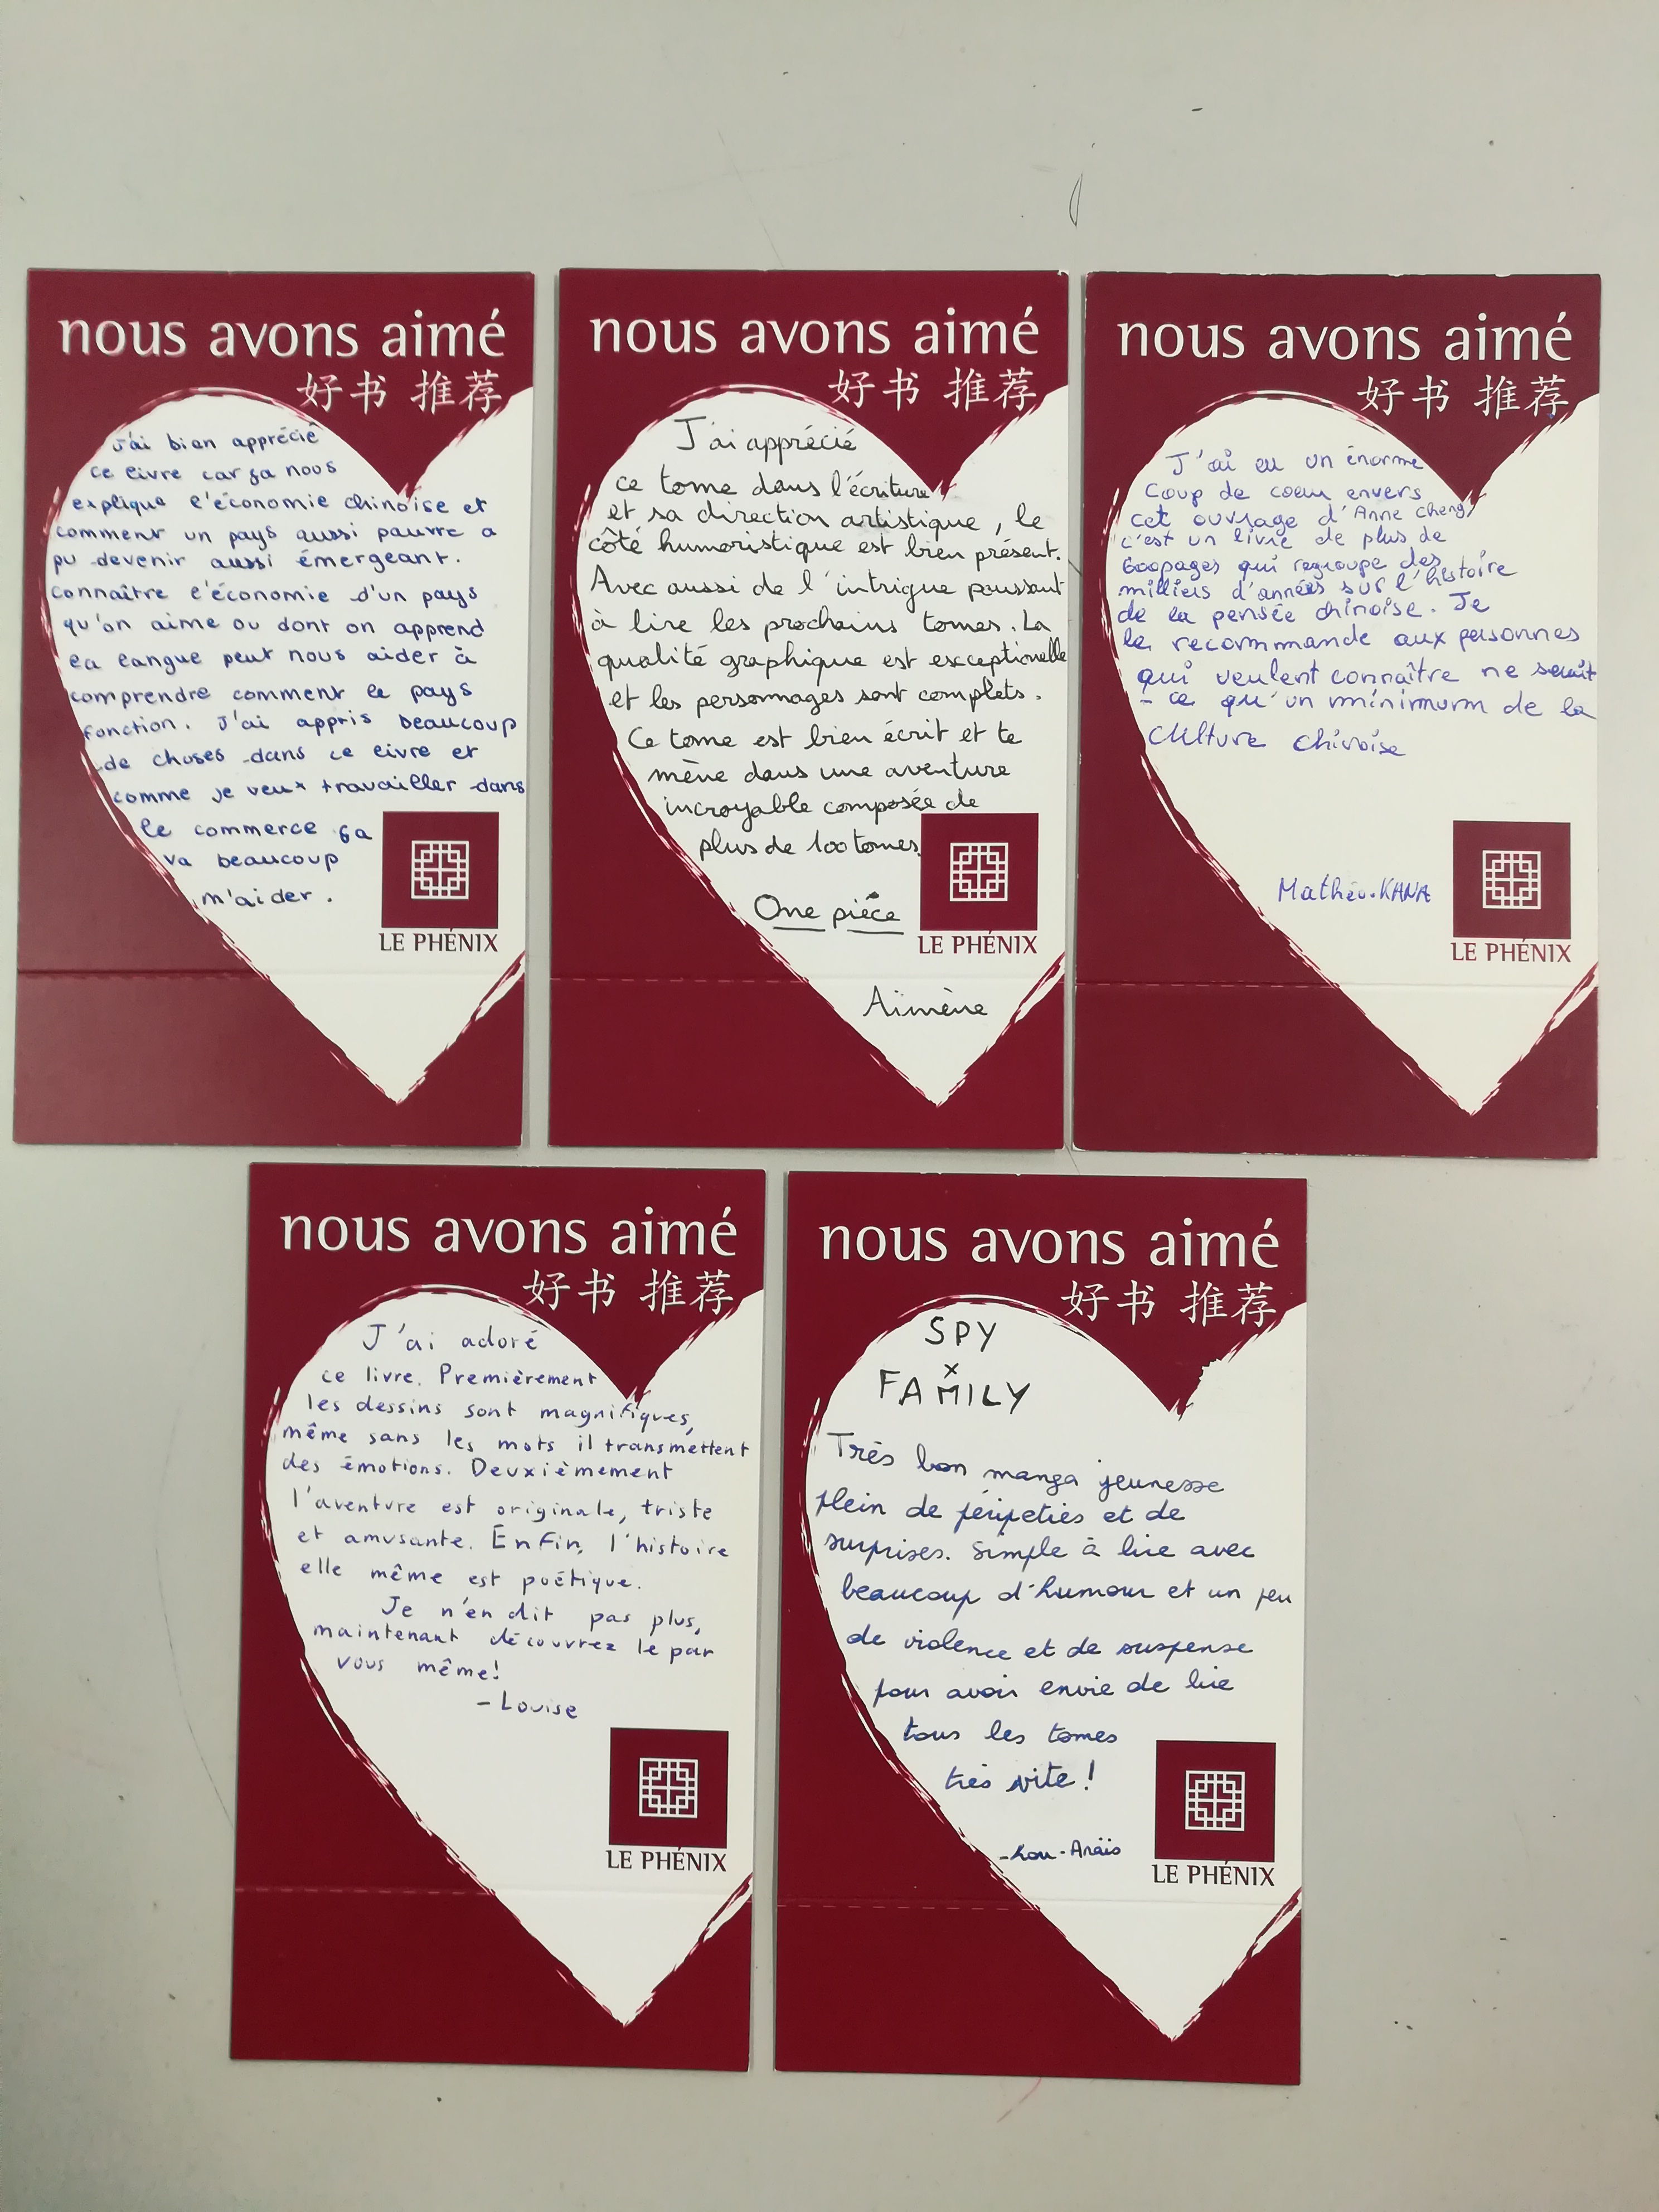 nous avons aimé
好书 推荐
J'ai bien apprécié
ce livre car ça nous
explique l'économie chinoise et
comment un pays aussi pauvre a
pu devenir aussi émergeant.
connaître l'économie d'un pays
qu'on aime ou dont on apprend
la langue peut nous aider à
comprendre comment le pays
fonction. J'ai appris beaucoup
de choses dans ce livre et
comme je veux travailler dans
le commerce ça
va beaucoup
m'aider.
LE PHÉNIX
nous avons aimé
好书 推荐
J'ai apprécié
ce tome dans l'écriture
et sa direction artistique, le
côté humoristique est bien présent.
Avec aussi de l'intrigue poussant
à lire les prochains tomes. La
qualité graphique est exceptionelle
et les personnages sont complets.
Ce tome est bien écrit et te
mène dans une aventure
incroyable composée de
plus de 100 tomes.
One piéce
LE PHÉNIX
Aïmène
nous avons aimé
好书 推荐
J'ai eu un énorme
coup de coeur envers
cet ouvrage d'Anne Cheng,
c'est un livre de plus de
600pages qui regroupe des
milliers d'années sur l'histoire
de la pensée chinoise. Je
le recommande aux personnes
qui veulent connaître ne serait
- ce qu'un minimum de la
culture chinoise
Mathéo.KANA
LE PHÉNIX
nous avons aimé
好书 推荐
J'ai adoré
ce livre. Premièrement
les dessins sont magnifiques,
même sans les mots il transmettent
des émotions. Deuxièmement
l'aventure est originale, triste
et amusante. Enfin, l'histoire
elle même est poétique.
Je n'en dit pas plus,
maintenant découvrez le par
vous même!
- Louise
LE PHÉNIX
nous avons aimé
好书 推荐
SPY
x
FAMILY
Très bon manga jeunesse
plein de péripeties et de
surprises. Simple à lire avec
beaucoup d'humour et un peu
de violence et de suspense
pour avoir envie de lire
tous les tomes
très vite !
- Lou-Anaïs
LE PHÉNIX